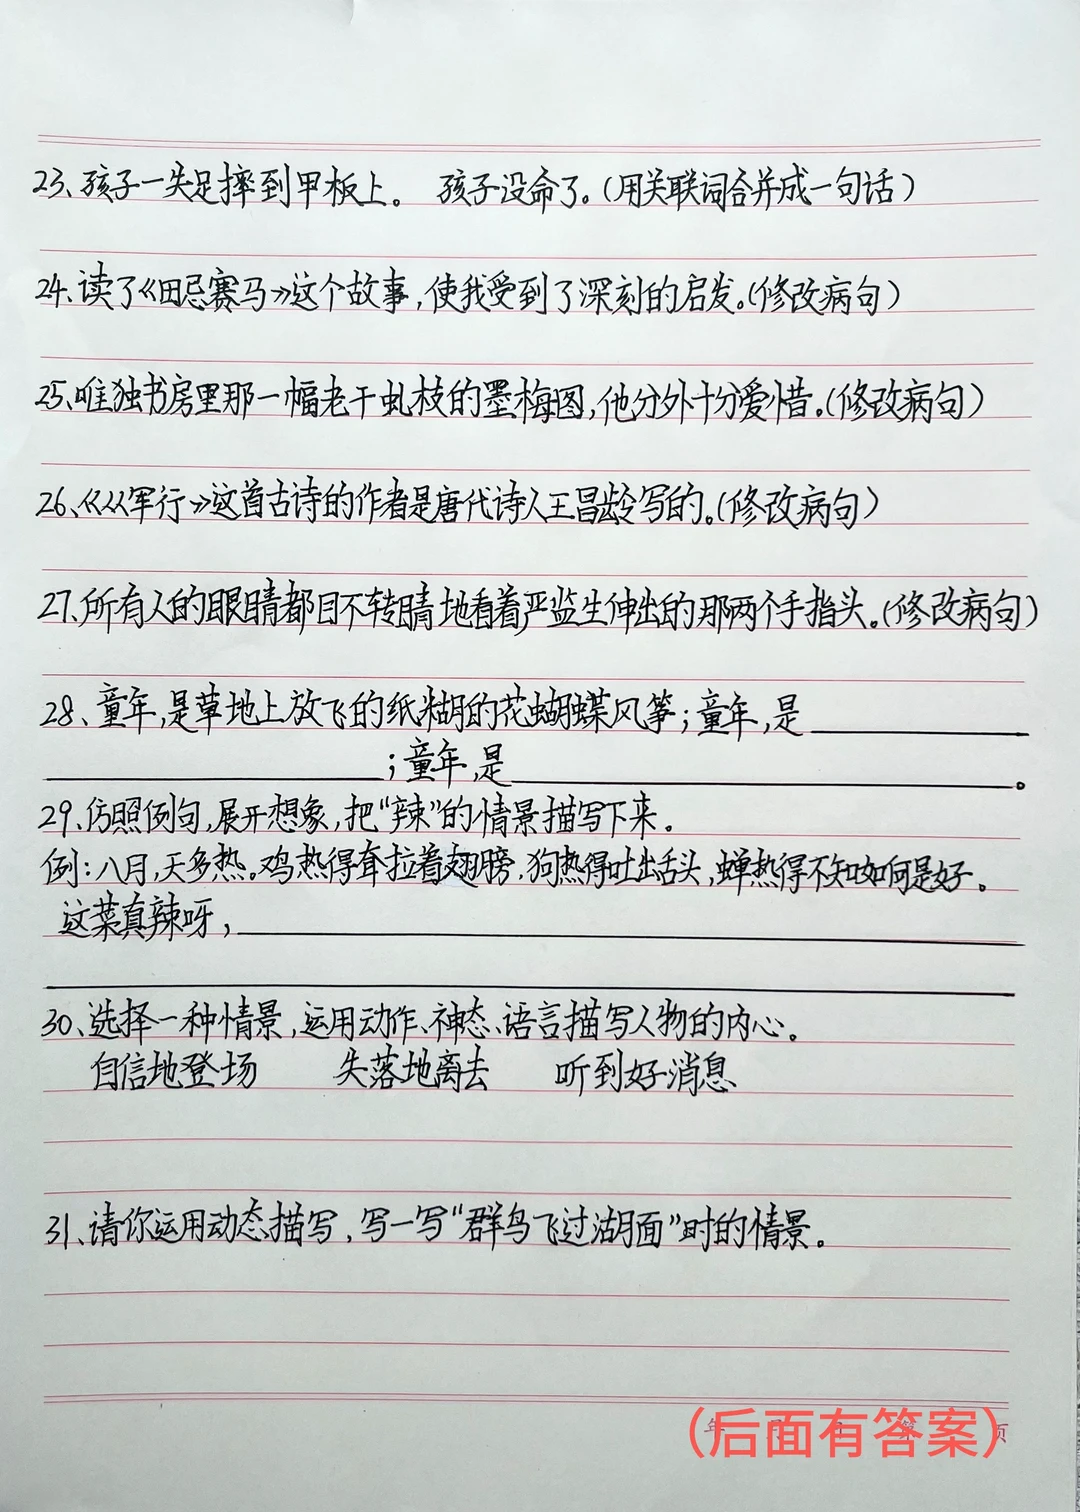 23、孩子一失足摔到甲板上。 孩子没命了。(用关联词合并成一句话)
24、读了《田忌赛马》这个故事,使我受到了深刻的启发。(修改病句)
25、唯独书房里那一幅老干虬枝的墨梅图,他分外十分爱惜。(修改病句)
26、《从军行》这首古诗的作者是唐代诗人王昌龄写的。(修改病句)
27、所有人的眼睛都目不转睛地看着严监生伸出的那两个手指头。(修改病句)
28、童年,是草地上放飞的纸糊的花蝴蝶风筝;童年,是
;童年,是 。
29、仿照例句,展开想象,把“辣”的情景描写下来。
例:八月,天多热。鸡热得耷拉着翅膀,狗热得吐出舌头,蝉热得不知如何是好。
这菜真辣呀,
30、选择一种情景,运用动作、神态、语言描写人物的内心。
自信地登场 失落地离去 听到好消息
31、请你运用动态描写,写一写“群鸟飞过湖面”时的情景。
年 月 日 第 页
(后面有答案)